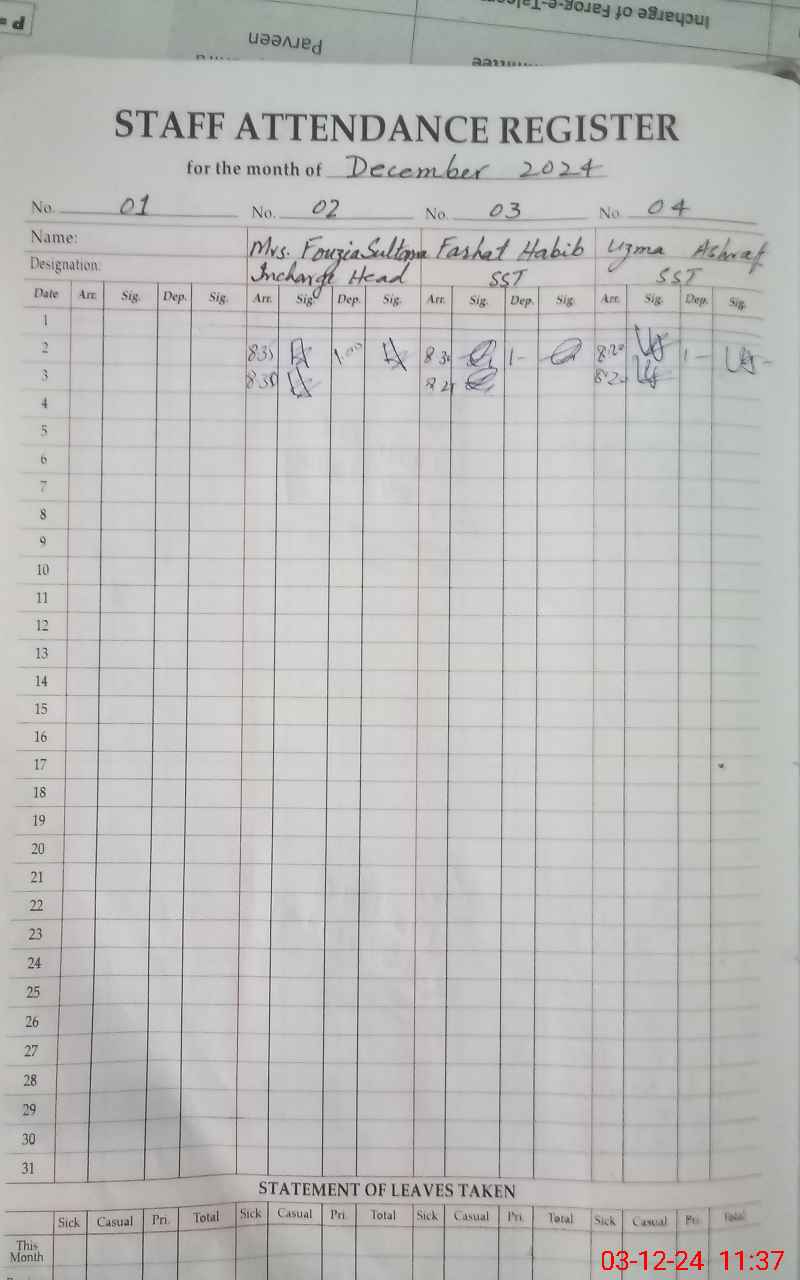 Incharge of Farog-e-Taleem
P =
Parveen
STAFF ATTENDANCE REGISTER
for the month of December 2024
No. 01 No. 02 No. 03 No. 04
Name: Mrs. Fouzia Sultana Farhat Habib Uzma Ashraf
Designation: Incharge Head SST SST
Date Arr. Sig. Dep. Sig. Arr. Sig. Dep. Sig. Arr. Sig. Dep. Sig. Arr. Sig. Dep. Sig.
1
2 835 1 00 8 30 1- 8:20 1-
3 830
4
5
6
7
8
9
10
11
12
13
14
15
16
17
18
19
20
21
22
23
24
25
26
27
28
29
30
31
STATEMENT OF LEAVES TAKEN
Sick Casual Pri. Total Sick Casual Pri. Total Sick Casual Pri. Total Sick Casual Pri. Total
This
Month
03-12-24 11:37